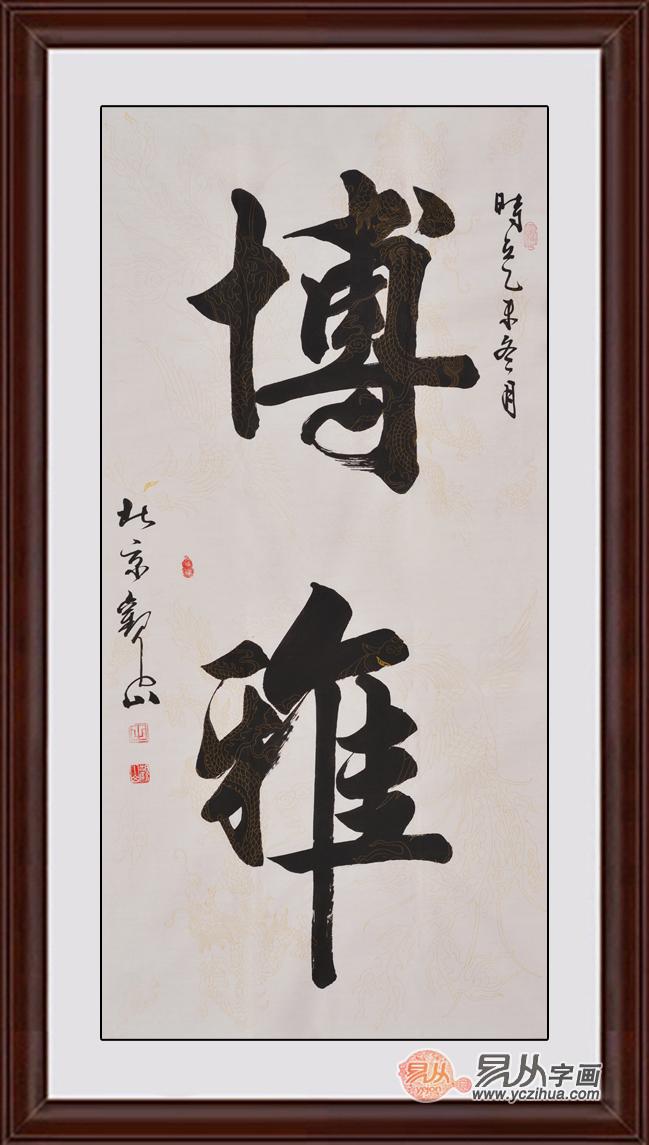 博雅
時在乙未冬月
北京觀山
易从
yejon
易从字画
www.yczihua.com